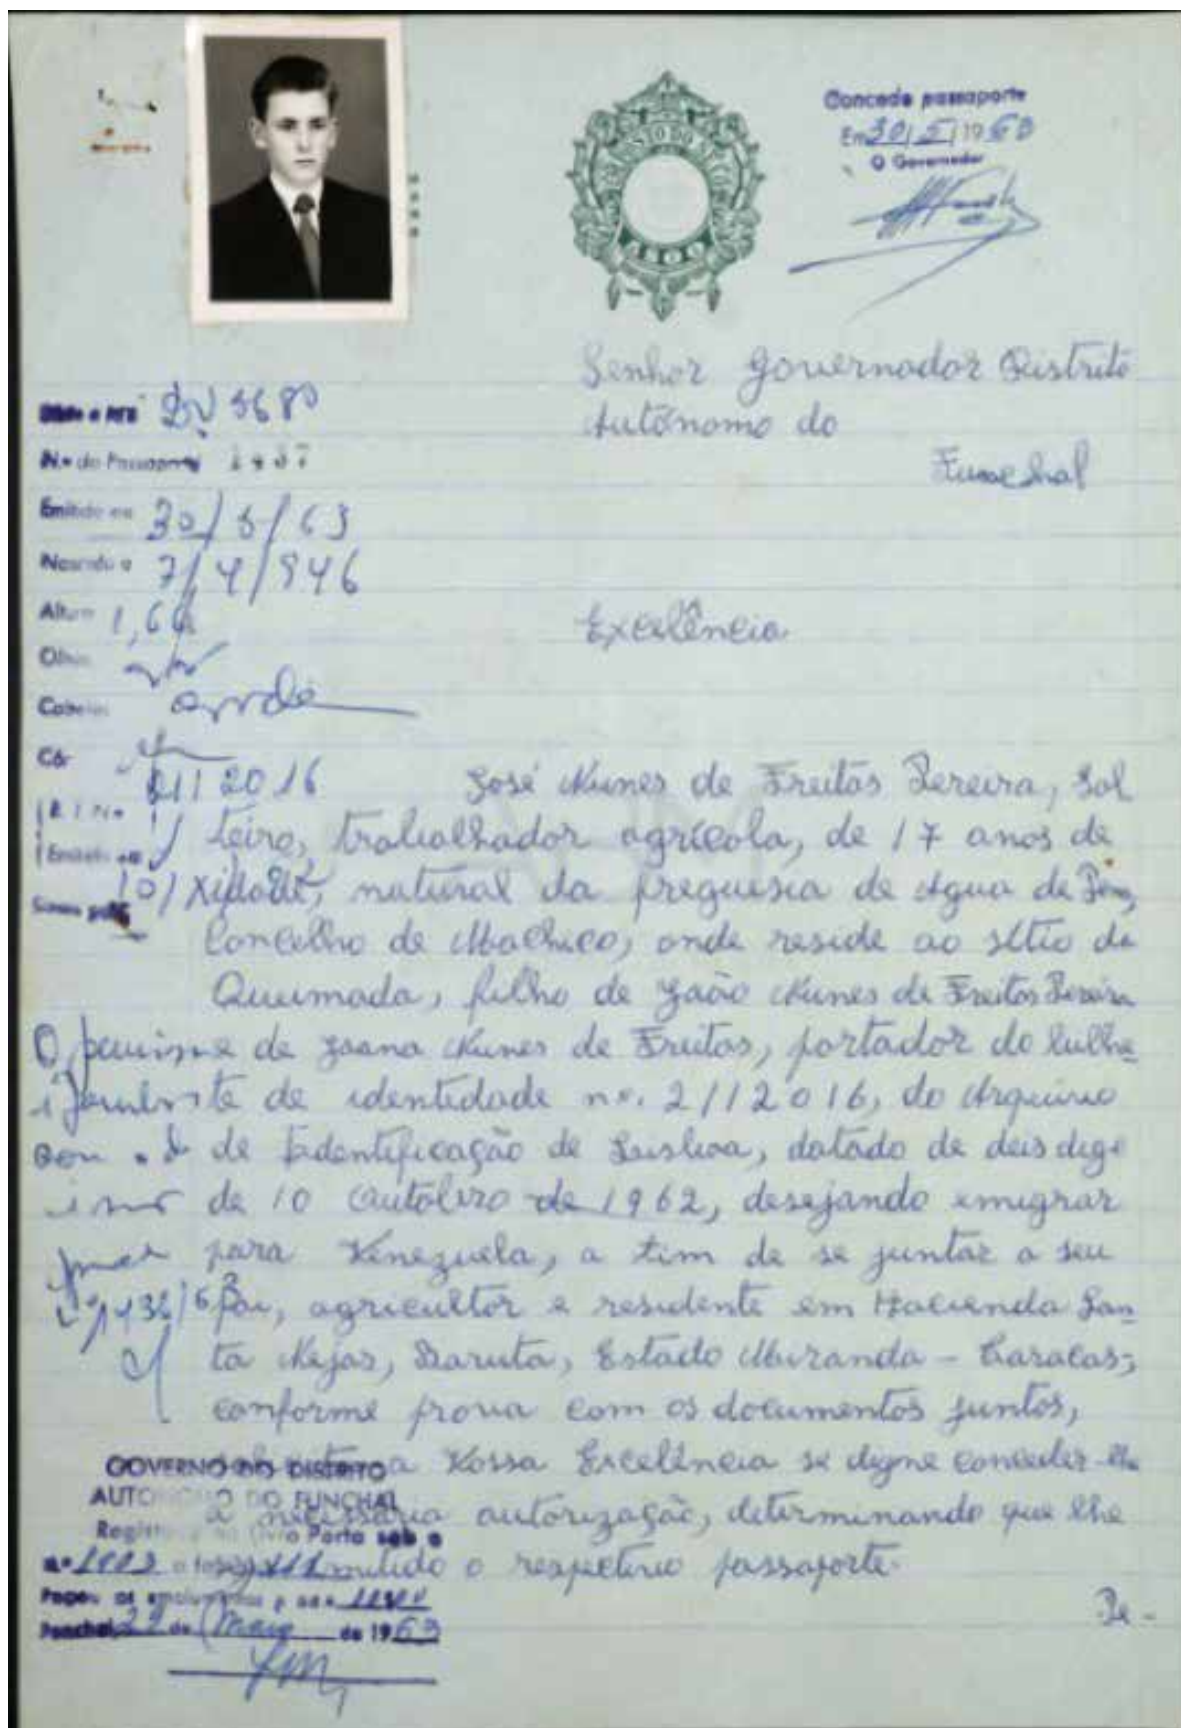 Concede passaporte
Em 30/5/1963
O Governador
IMPOSTO DO SELO
Senhor Governador Distrito
Autónomo do
Funchal
N.º do Passaporte 1437
Emitido em 30/5/63
Nascido a 7/4/946
Altura 1,64
Olhos
Cabelos
Côr
2112016
B. I. N.º
Emitido em
10/X/
Excelência
José Nunes de Freitas Pereira, Sol
teiro, trabalhador agrícola, de 17 anos de
idade, natural da freguesia de Agua de Pena,
Concelho de Machico, onde reside ao sítio da
Queimada, filho de João Nunes de Freitas Pereira
e de Joana Nunes de Freitas, portador do bilhe
te de identidade nº. 2112016, do Arquivo
de Identificação de Lisboa, datado de
de 10 Outobro de 1962, desejando emigrar
para Venezuela, a fim de se juntar a seu
pai, agricultor e residente em Hacienda San
ta Nejas, Baruta, Estado Muranda - Caracas;
conforme prova com os documentos juntos,
a Vossa Excelência se digne conceder-lhe
a necessária autorização, determinando que lhe
seja emitido o respectivo passaporte.
Pe-
GOVERNO DO DISTRITO
AUTÓNOMO DO FUNCHAL
Livro Porta sob o
N.º 1003
Funchal, 29 de Maio de 1963